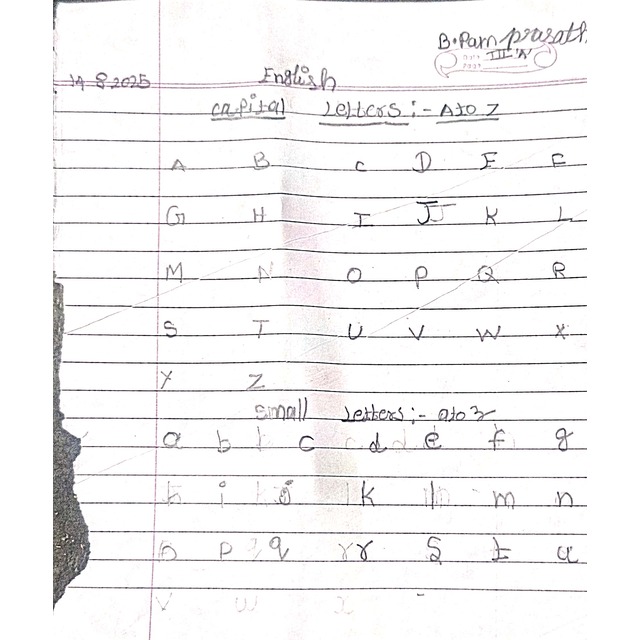 B. Parn prasath
III 'A'
14.8.2025 English
capital Letters :- A to Z
A B C D E F
G H I J K L
M N O P Q R
S T U V W X
Y Z
Small Letters :- a to z
a b c d e f g
h i j k l m n
o p q r s t u
v w x